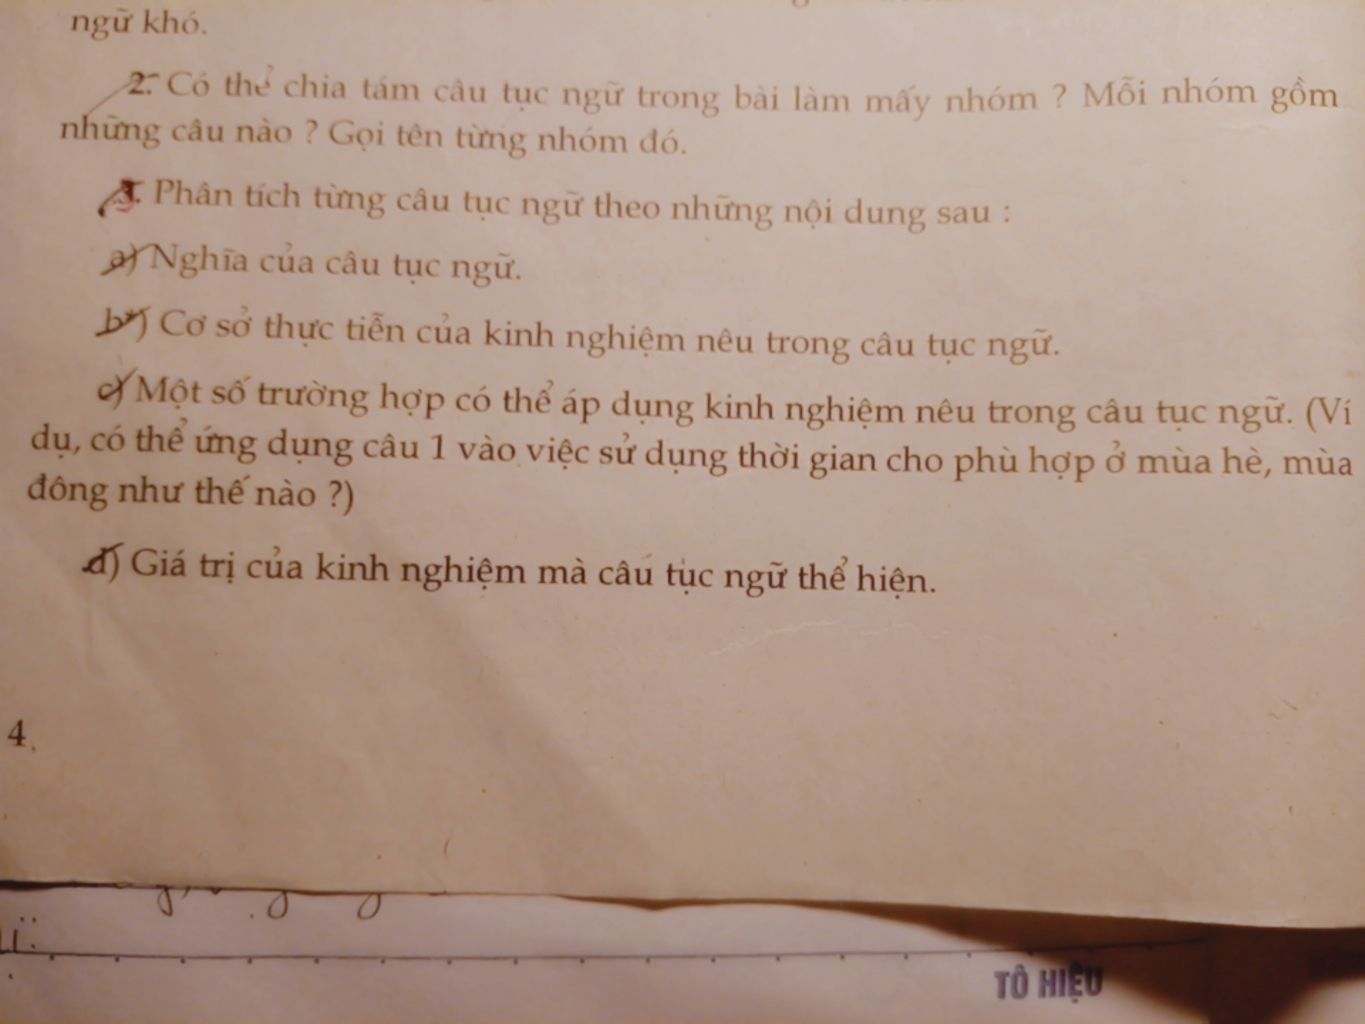 ngữ khó.
2. Có thể chia tám câu tục ngữ trong bài làm mấy nhóm ? Mỗi nhóm gồm
những câu nào ? Gọi tên từng nhóm đó.
3. Phân tích từng câu tục ngữ theo những nội dung sau :
a) Nghĩa của câu tục ngữ.
b*) Cơ sở thực tiễn của kinh nghiệm nêu trong câu tục ngữ.
c) Một số trường hợp có thể áp dụng kinh nghiệm nêu trong câu tục ngữ. (Ví
dụ, có thể ứng dụng câu 1 vào việc sử dụng thời gian cho phù hợp ở mùa hè, mùa
đông như thế nào ?)
d) Giá trị của kinh nghiệm mà câu tục ngữ thể hiện.
4
TÔ HIỆU